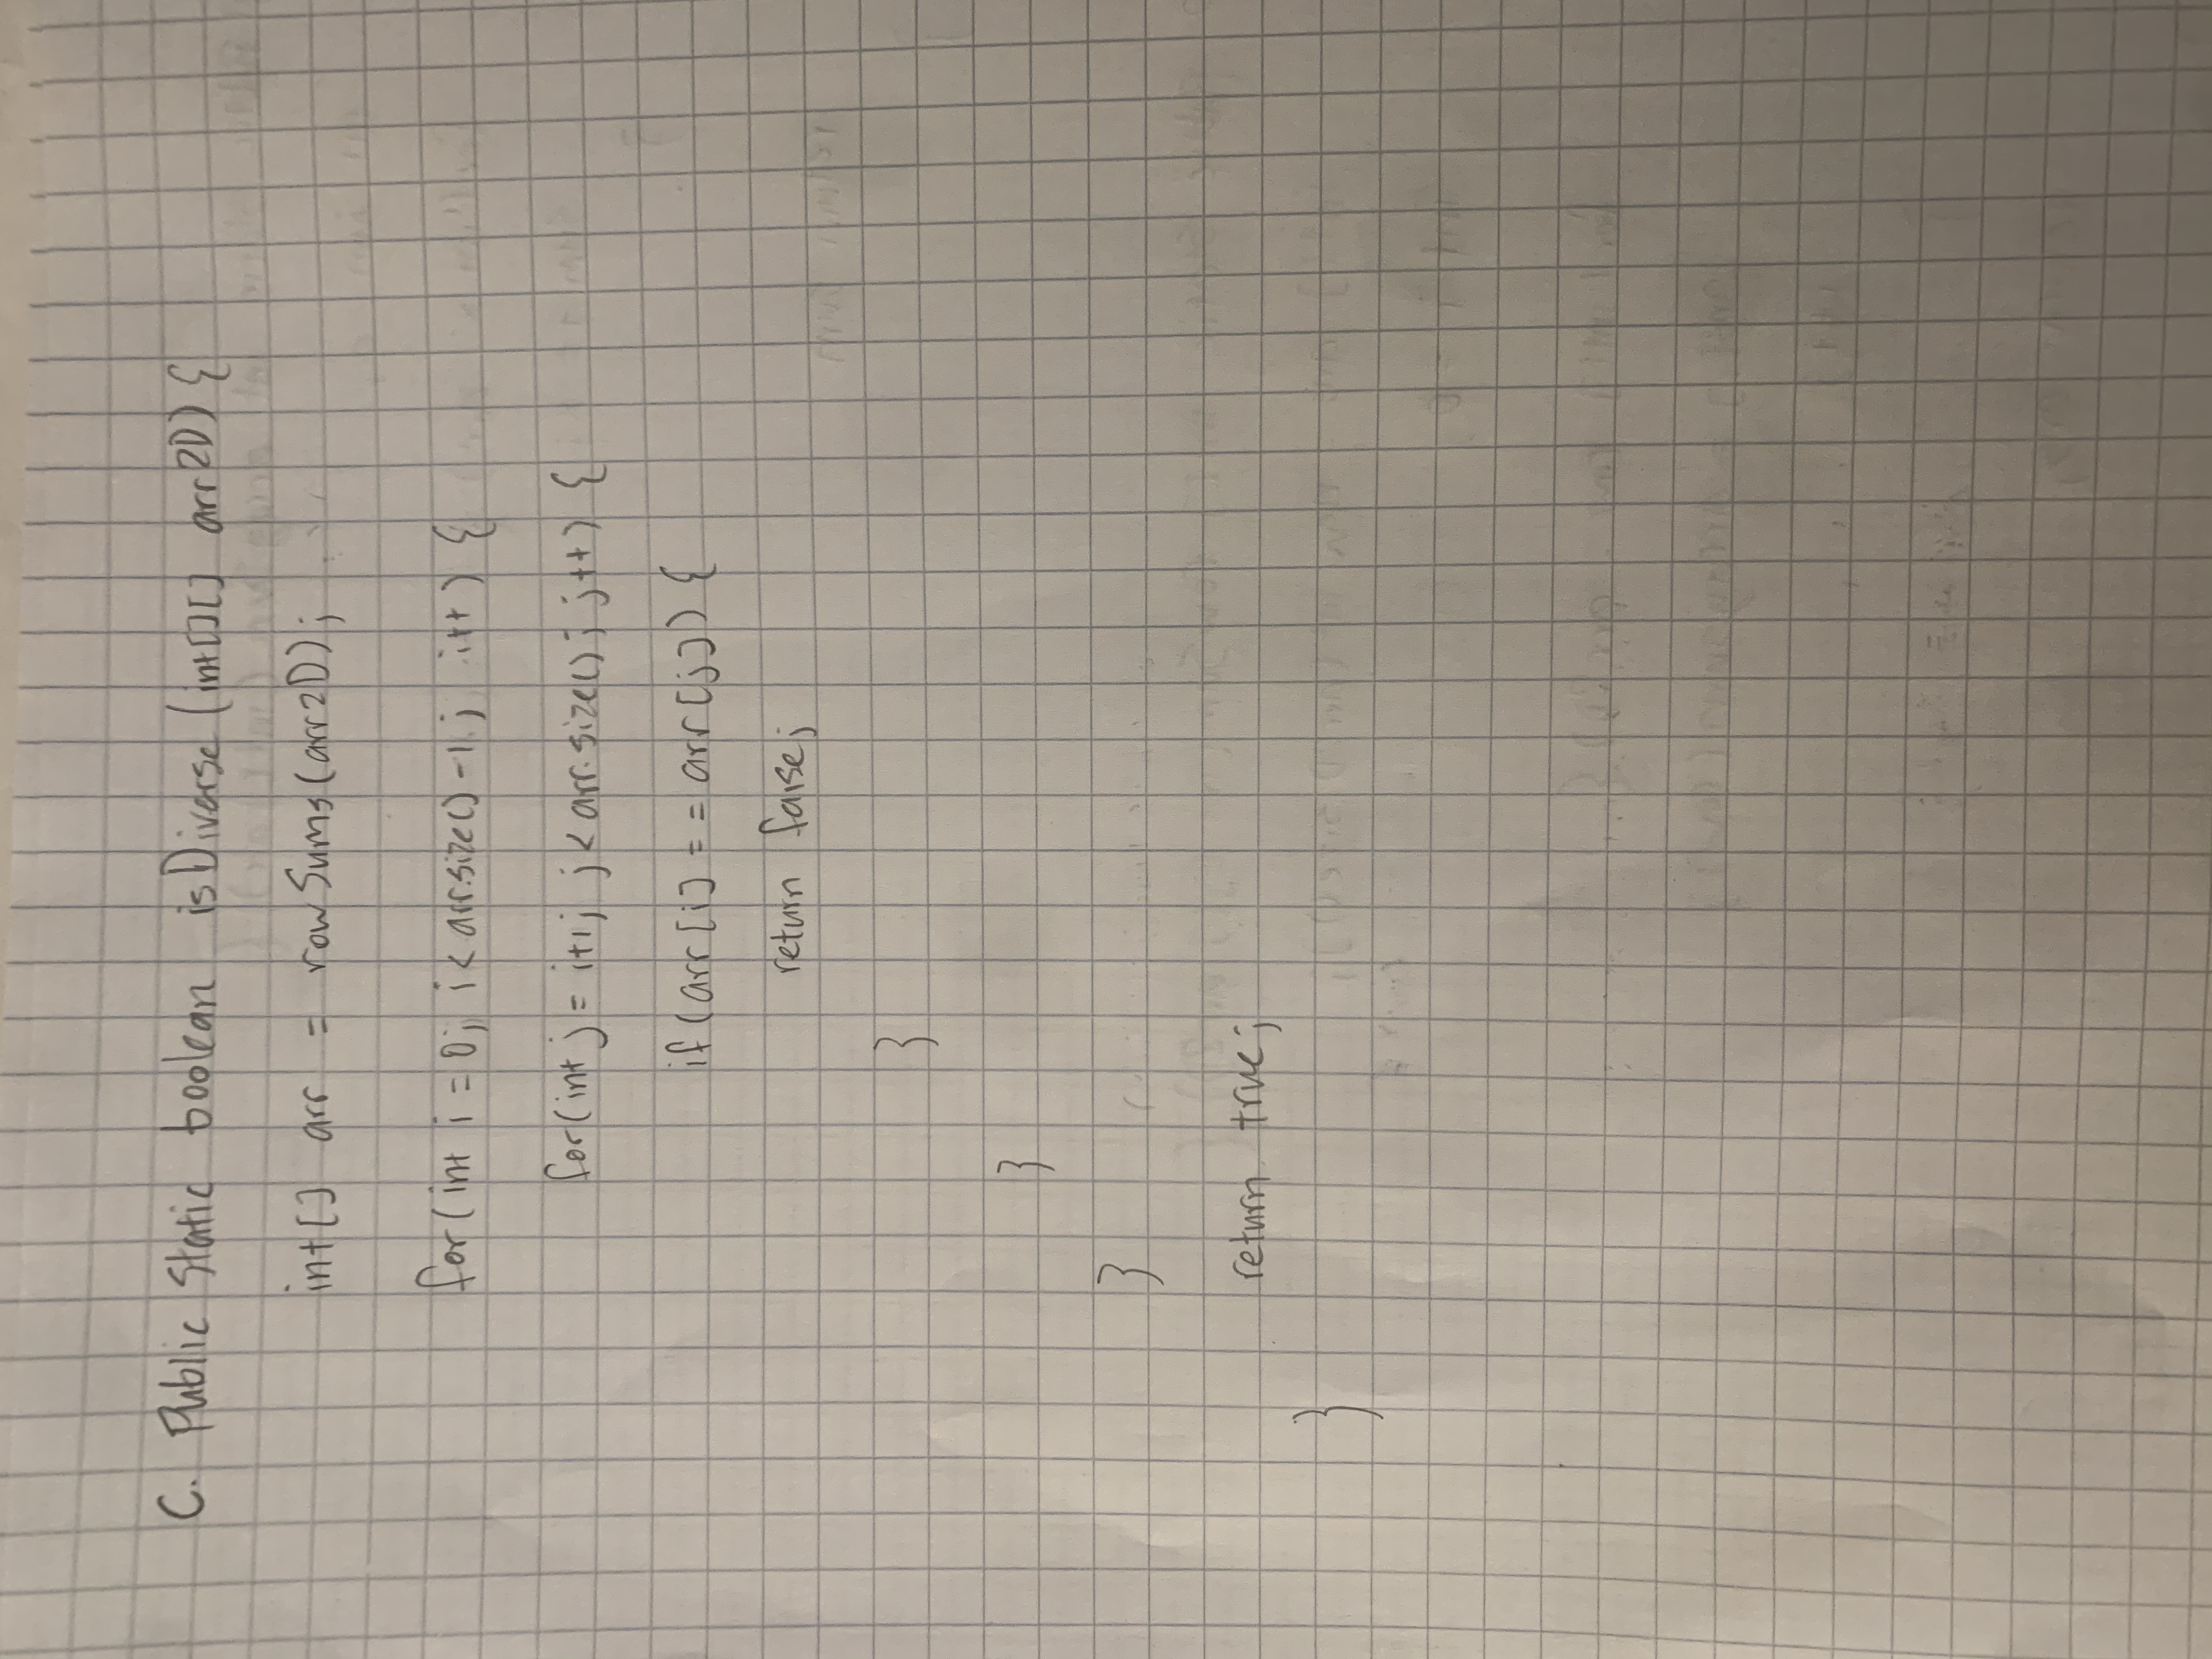 C. Public Static boolean isDiverse (int[][] arr2D) {
int[] arr = rowSums(arr2D);
for(int i = 0; i < arr.size() -1 ; i++ ) {
for(int j = i+1; j < arr.size(); j++) {
if (arr[i] == arr[j]) {
return false;
}
}
}
return true;
}